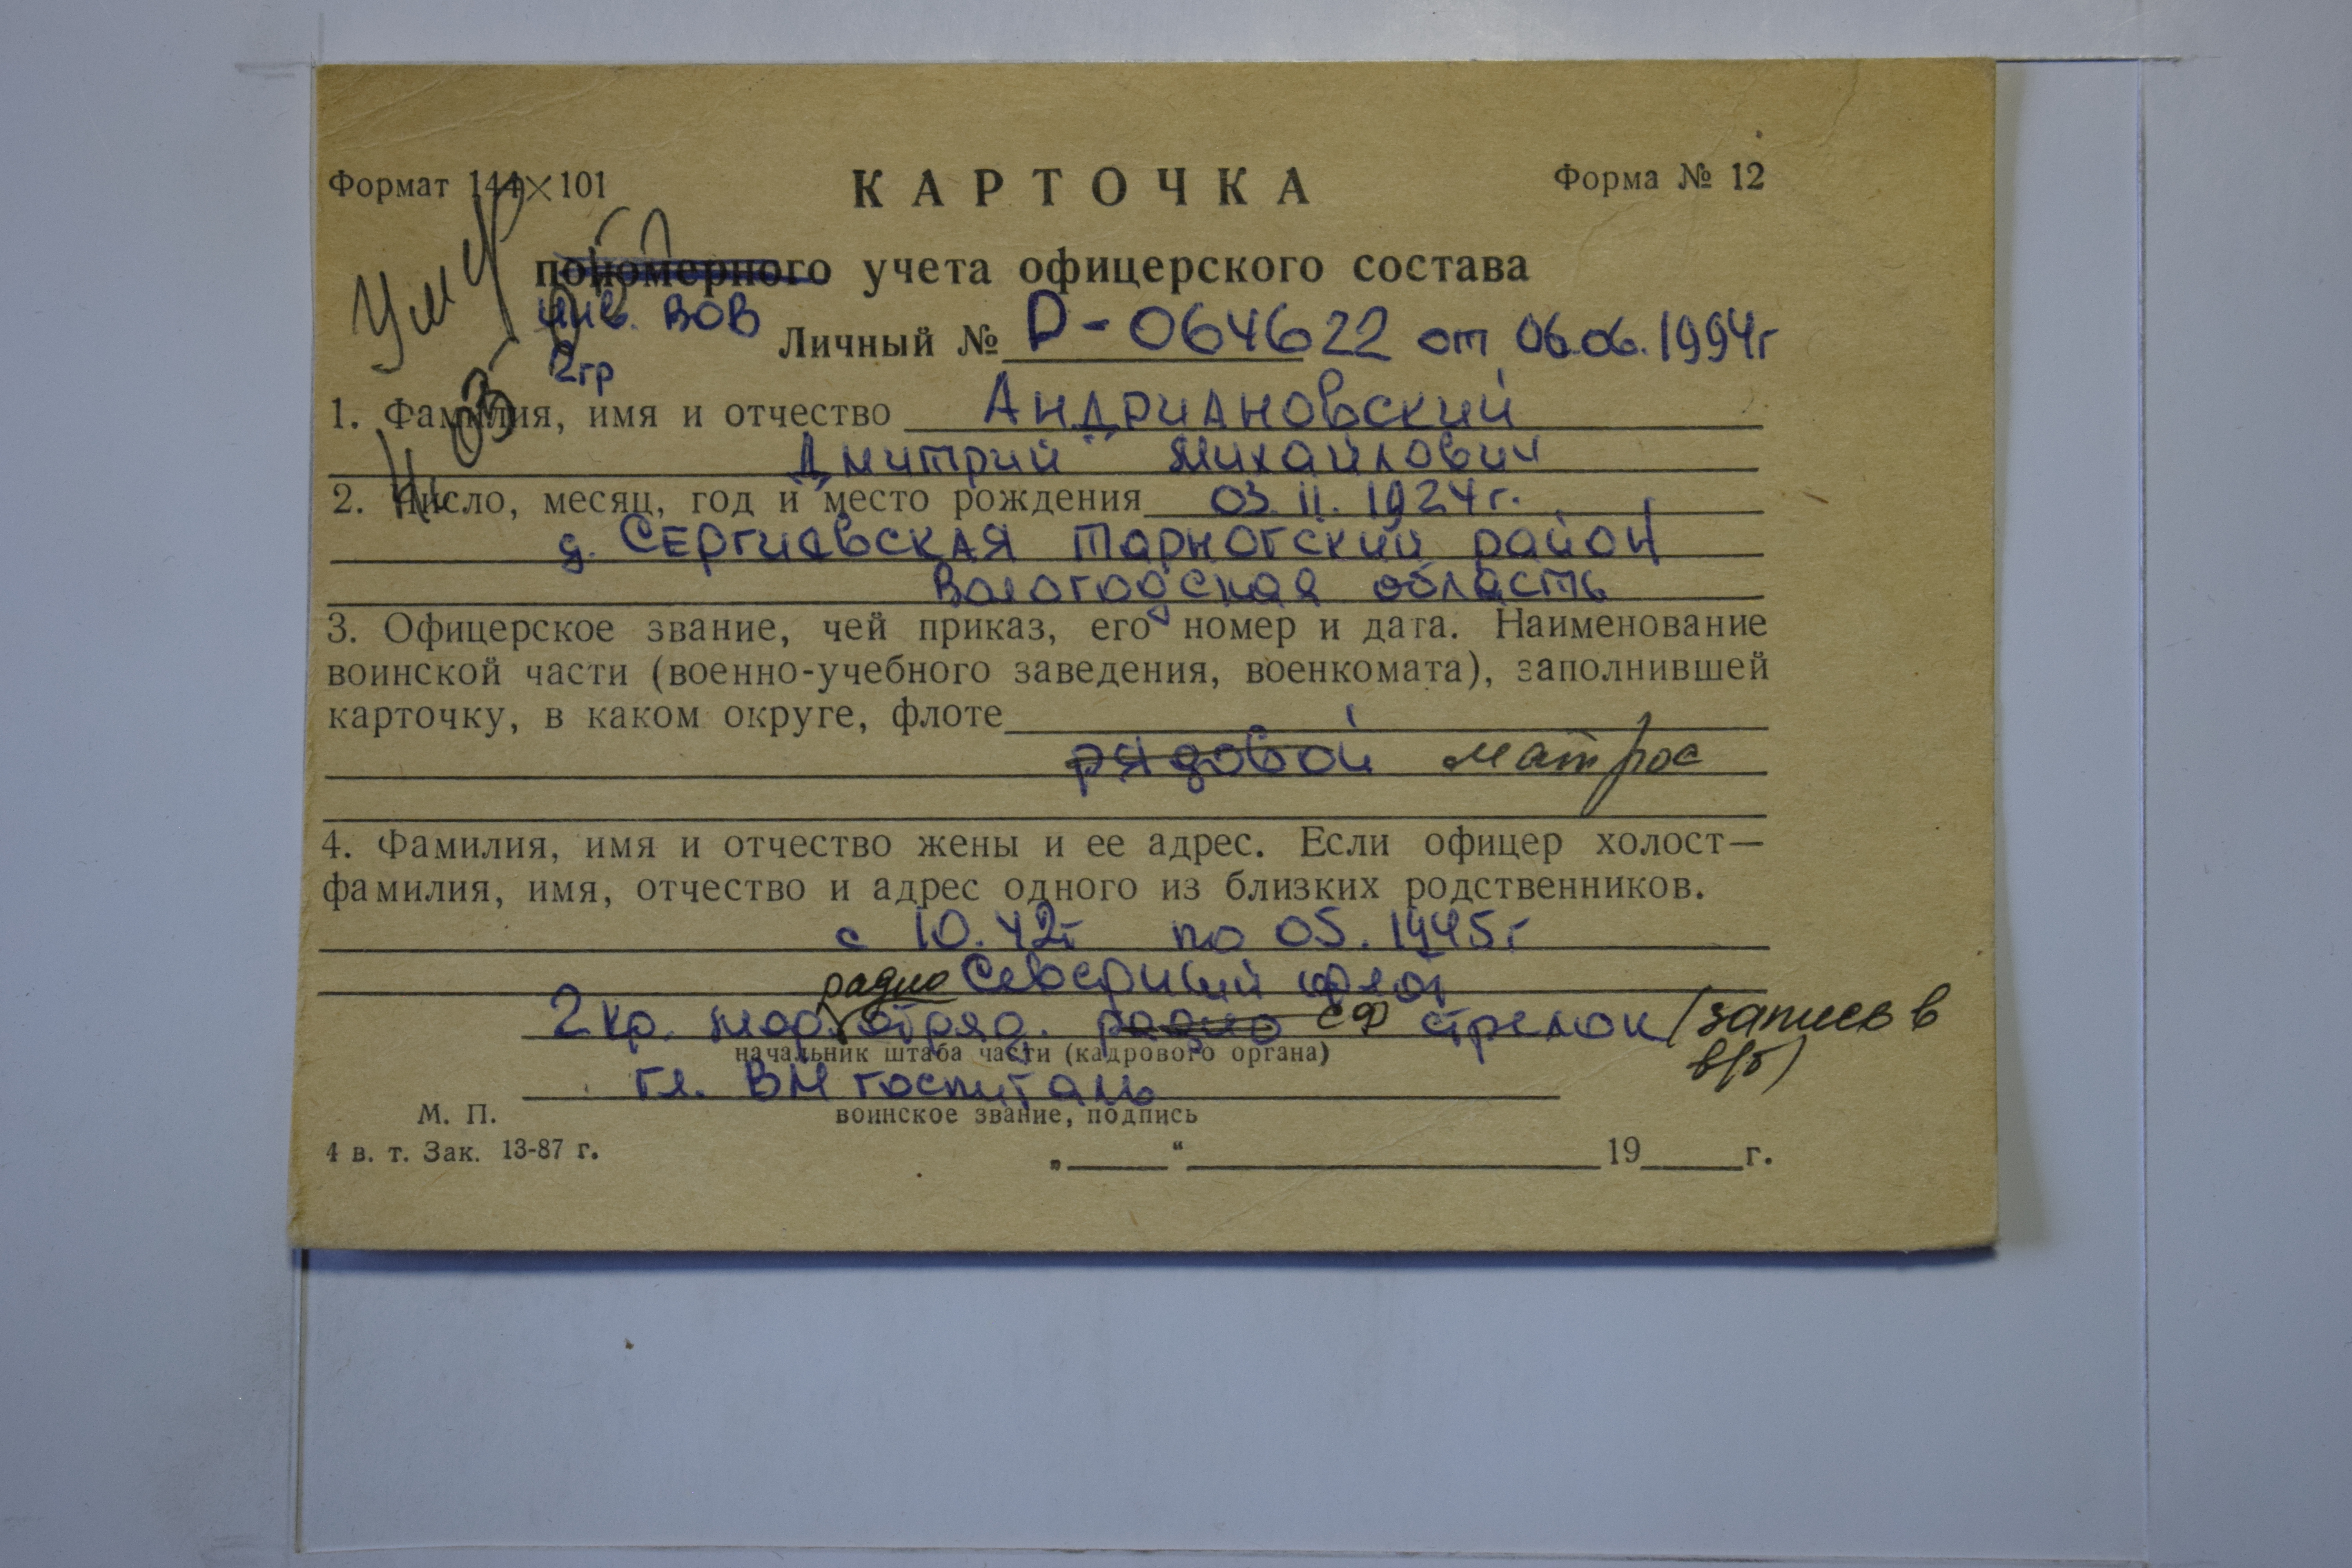 Формат 144×101
КАРТОЧКА
Форма № 12
пономерного учета офицерского состава
инв. ВОВ
2гр
Личный № Д-064622 от 06.06.1994г
1. Фамилия, имя и отчество Андриановский
Дмитрий Михайлович
2. Число, месяц, год и место рождения 03.11.1924г.
д. Сергиевская Тарногский район
Вологодская область
3. Офицерское звание, чей приказ, его номер и дата. Наименование
воинской части (военно-учебного заведения, военкомата), заполнившей
карточку, в каком округе, флоте
рядовой матрос
4. Фамилия, имя и отчество жены и ее адрес. Если офицер холост—
фамилия, имя, отчество и адрес одного из близких родственников.
с 10.42г по 05.1945г
радио Северный флот
2 кр. мор. отряд. радио СФ стрелок (запись в
в/б)
начальник штаба части (кадрового органа)
Гл. ВМ госпиталь
воинское звание, подпись
М. П.
4 в. т. Зак. 13-87 г.
„ “ 19 г.